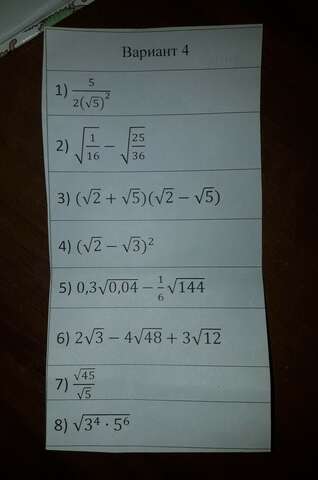 Вариант 4
1) 5/(2(√5)²)
2) √(1/16) − √(25/36)
3) (√2 + √5)(√2 − √5)
4) (√2 − √3)²
5) 0,3√0,04 − 1/6 √144
6) 2√3 − 4√48 + 3√12
7) √45/√5
8) √(3⁴ · 5⁶)